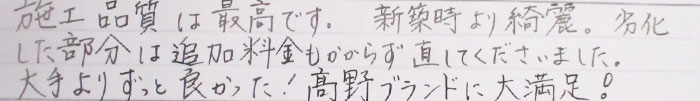 施工品質は最高です。 新築時より綺麗。劣化
した部分は追加料金もかからず直してくださいました。
大手よりずっと良かった！髙野ブランドに大満足！